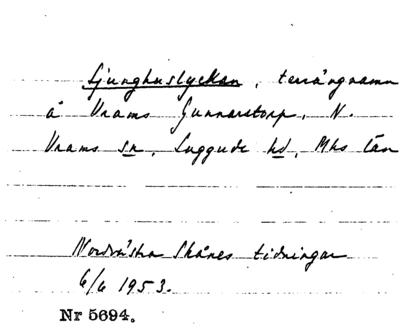 Ljunghuslyckan, terrängnamn
å Vrams Gunnarstorp, N.
Vrams sn, Luggude hd, Mhs län
Nordvästra Skånes tidningar
6/6 1953.
Nr 5694.